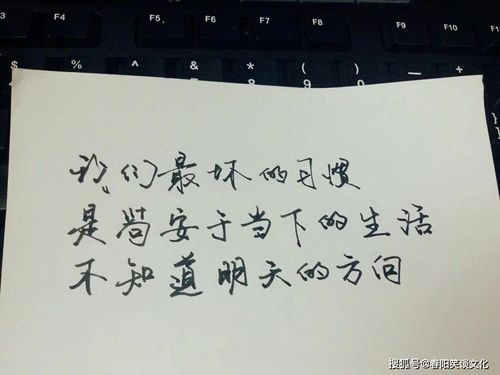 F5 F6 F7 F8 F9 F10
$ % ^ & * ( ) — +
我们最坏的习惯
是苟安于当下的生活
不知道明天的方向
搜狐号@春阳笑谈文化